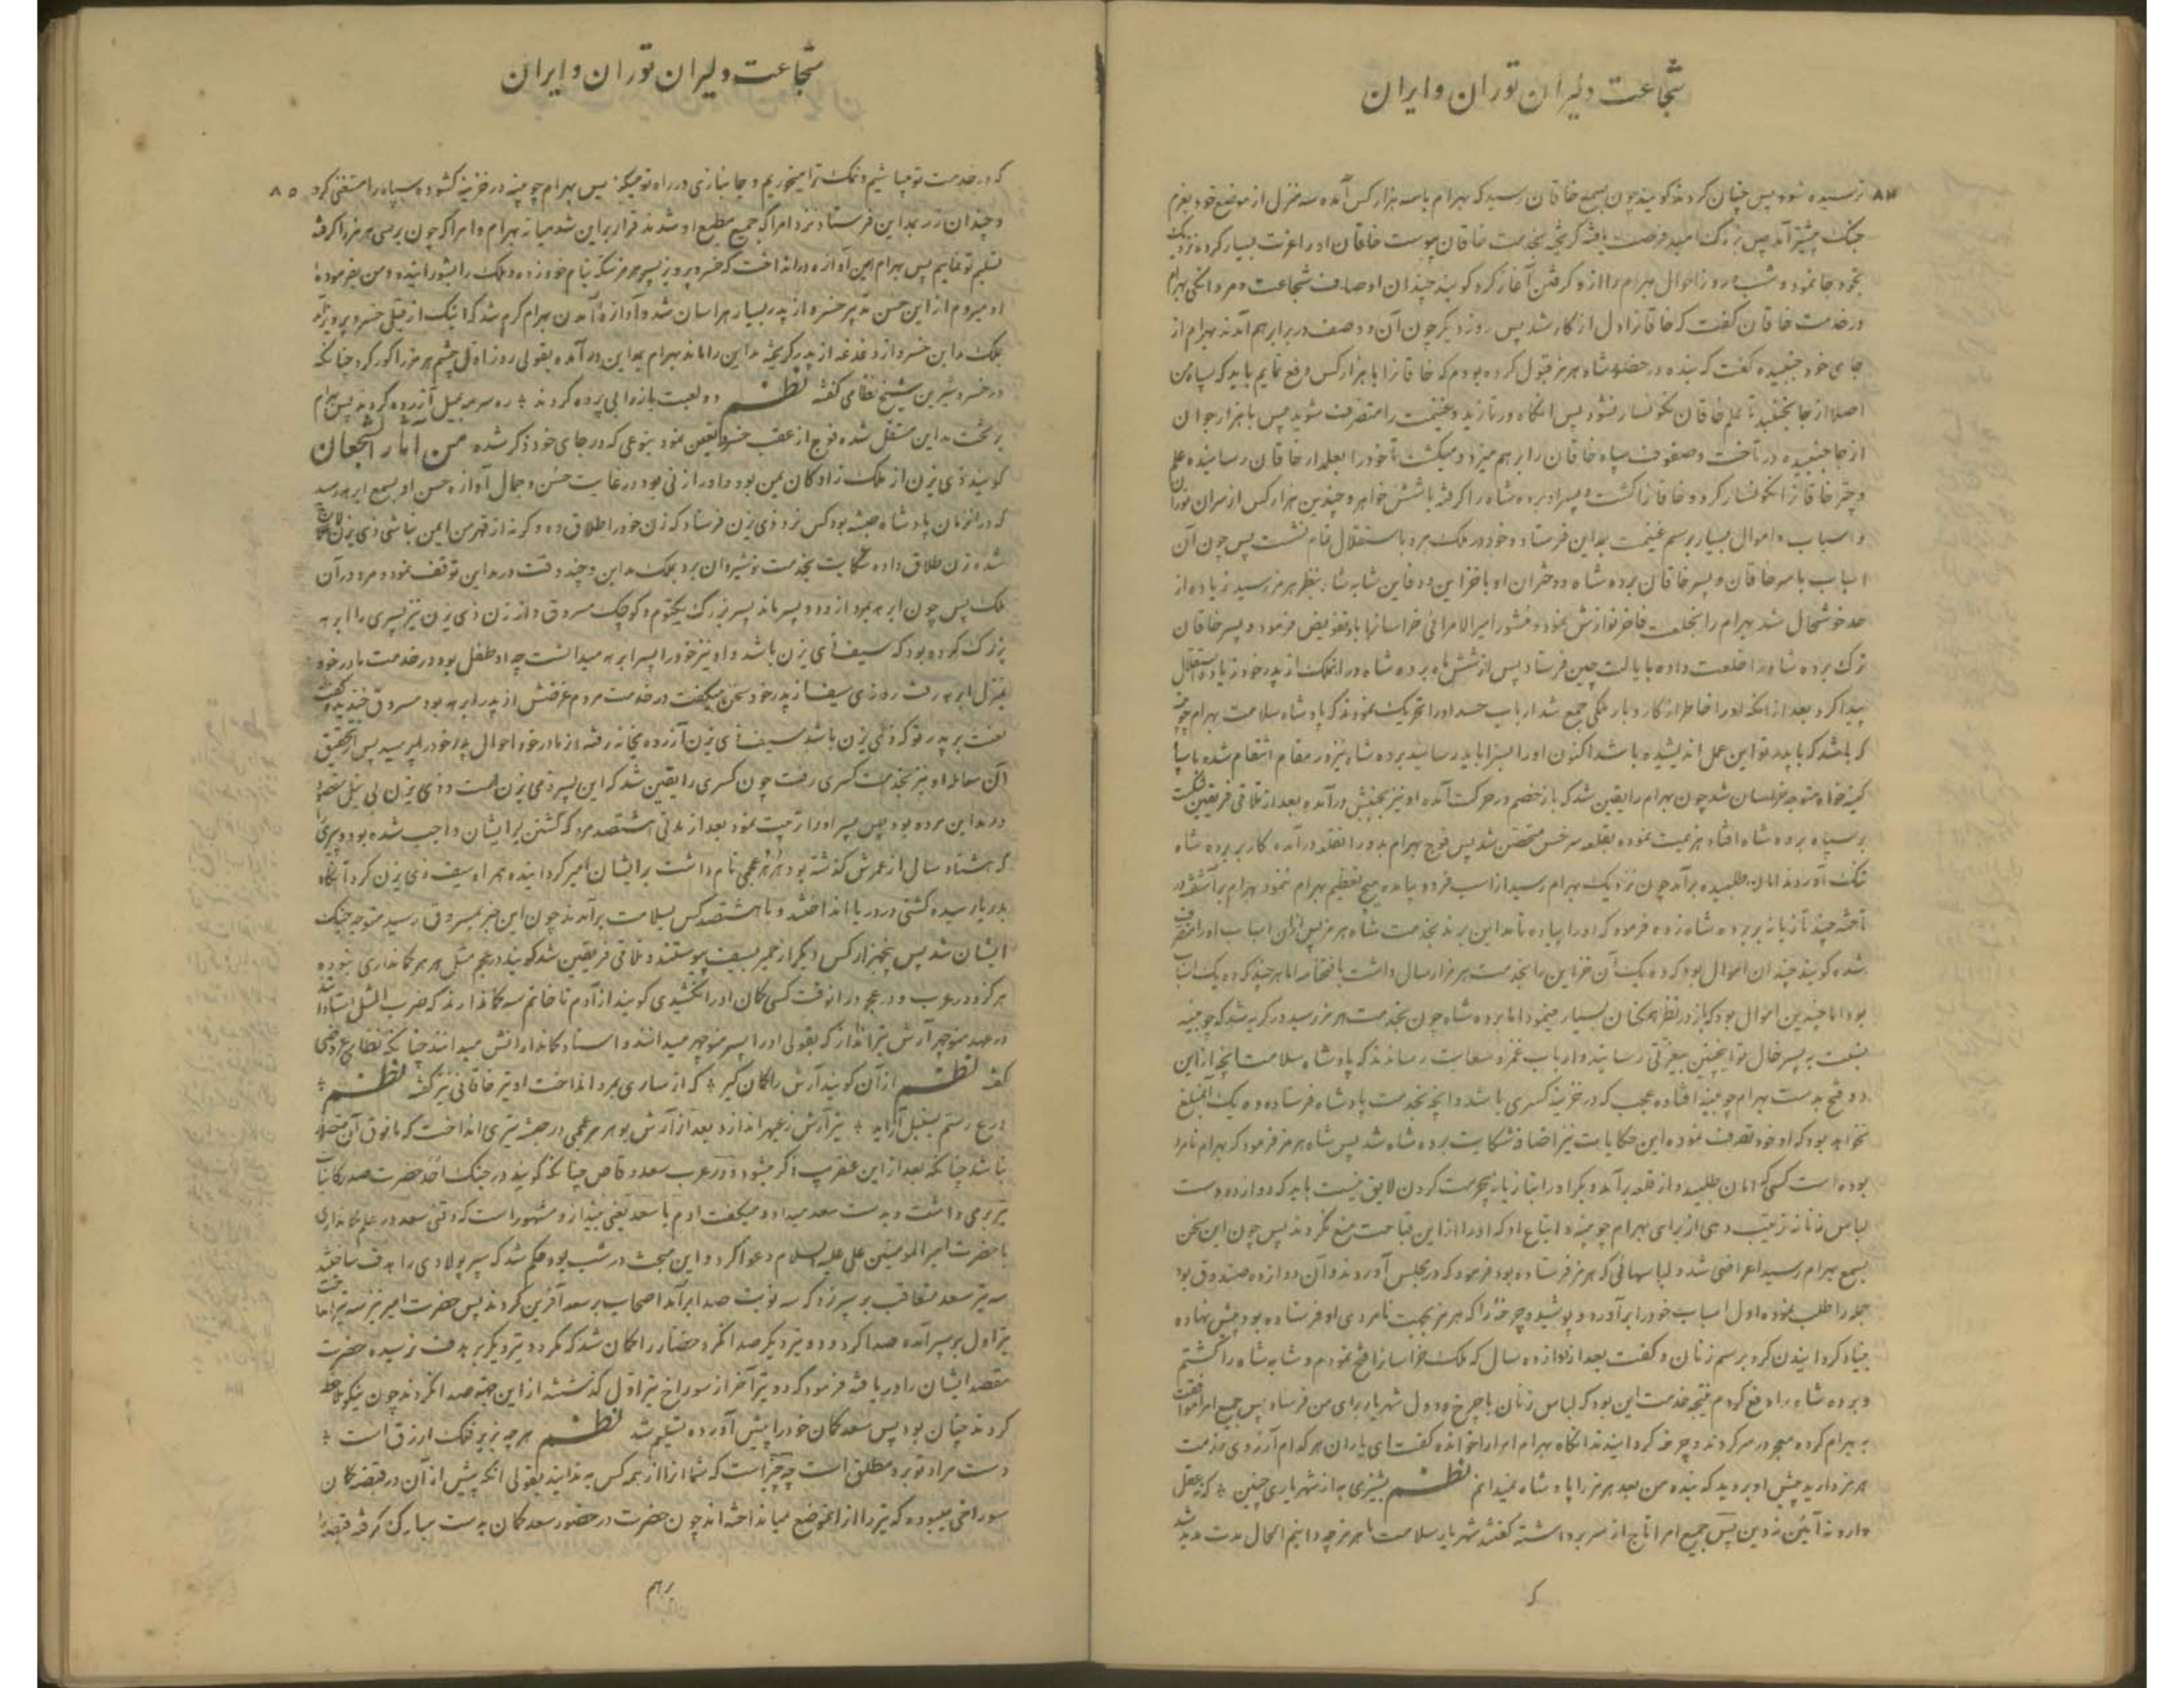 شجاعت دلیران توران و ایران
۸۴
نرسیده شود پس چنان کردند گویند چون بسمع خاقان رسید که بهرام با سه هزار کس آمده سه منزل از موضع خود بعزم
جنک پیشتر آمد پس بزرک امید فرصت یافته کریخته بخدمت خاقان پیوست خاقان او را عزت بسیار کرده نزدیک
بخود جا نمود و شب و روز احوال بهرام را از و کرفتن آغاز کرد گویند چندان اوصاف شجاعت و مردانکی بهرام
در خدمت خاقان گفت که خاقانرا دل از کار شد پس روز دیکر چون آن دو صف در برابر هم آمدند بهرام از
جای خود جنبیده گفت که بنده در حضور شاه هرمز قبول کرده بودم که خاقانرا با هزار کس دفع نمایم باید که سپاه من
اصلا از جا نجنبید تا علم خاقان نکونسار نشود پس انکاه در تازید و غنیمت را متصرف شوید پس با هزار جوان
از جا جنبیده در تاخت و صفوف سپاه خاقان را بر هم میزد و میکشت تا خود را بعلمدار خاقان رسانیده علم
و چتر خاقانرا نکونسار کرد و خاقانرا کشت و پسر او برده شاه را کرفته با شش خواهر و چندین هزار کس از سران توران
و اسباب و اموال بسیار برسم غنیمت بمداین فرستاد و خود در ملک مرو باستقلال تمام نشست پس چون آن
اسباب با سر خاقان و پسر خاقان برده شاه و دختران او با خزاین و دفاین شابه شاه بنظر هرمز رسید زیاده از
حد خوشحال شد بهرام را بخلعت فاخر نوازش نمود و منشور امیر الامرائی خراسانرا باو تفویض فرمود و پسر خاقان
ترک برده شاه را خلعت داده بایالت چین فرستاد پس از شش ماه برده شاه در انملک از پدر خود زیاده استقلال
پیدا کرد بعد از انکه او را خاطر از کار و بار ملکی جمع شد ارباب حسد او را تحریک نمودند که پادشاه سلامت بهرام چوبینه
که باشد که با پدر تو این عمل اندیشیده باشد اکنون او را بسزا باید رسانید برده شاه نیز در مقام انتقام شده با سپاه
کینه خواه متوجه خراسان شد چون بهرام را یقین شد که باز خصم در حرکت آمده او نیز بجنبش در آمده بعد از تلاقی فریقین شکست
بر سپاه برده شاه افتاد هزیمت نموده بقلعه سرخس متحصن شد پس فوج بهرام بدور انقلعه در آمده کار بر برده شاه
تنک آوردند امان طلبیده برآمد چون نزدیک بهرام رسید از اسب فرود نیامده هیچ تعظیم بهرام ننمود بهرام برآشفته در
تاخته چند تازیانه بر برده شاه زده فرمود که او را پیاده تا مداین برند بخدمت شاه هرمز پس ازان اسباب او را متصرف
شده گویند چندان اموال بود که ده یک آن خزاین را بخدمت هرمز ارسال داشت بافتخار اما هر چند که ده یک اسباب
بود اما چندین اموال بود که باز در نظر همکنان بسیار مینمود اما برده شاه چون بخدمت هرمز رسید در کریه شد که چوبینه
نسبت به پسر خال تو اینچنین بیعزتی رسانید و ارباب غمز و سعایت رساندند که پادشاه سلامت انچه ازین
دو فتح بدست بهرام چوبینه افتاده عجب که در خزینه کسری باشد و انچه بخدمت پادشاه فرستاده ده یک آنمبلغ
نخواهد بود که او خود تصرف نموده این حکایات نیز اضافه شکایت برده شاه شد پس شاه هرمز فرمود که بهرام نامرد
بوده است کسی که امان طلبیده از قلعه برآمد دیگر او را بتازیانه بیحرمت کردن لایق نیست باید که دوازده دست
لباس زنانه ترتیب دهی از برای بهرام چوبینه و اتباع او که او را از این قباحت منع نکردند پس چون این سخن
بسمع بهرام رسید اعراضی شد و لباسهائی که هرمز فرستاده بود فرمود که در مجلس آوردند و آن دوازده صندوق بود
جمله را طلب نموده اول اسباب خود را برآورد و پوشید و چرخه را که هرمز بجهت نامردی او فرستاده بود پیش نهاده
بنیاد کردانیدن کرد برسم زنان و گفت بعد از دوازده سال که ملک خراسانرا فتح نمودم و شابه شاه را کشتم
و برده شاه را دفع کردم نتیجه خدمت این بود که لباس زنان با چرخ و دول شهریار برای من فرستاد پس جمیع امرا موافقت
به بهرام کرده معجر در سر کردند و چرخه کردانیدند انکاه بهرام امرا را خوانده گفت ای یاران هر کدام آرزوی خدمت
هرمز دارید پیش او بروید که بنده من بعد هرمز را پادشاه نمیدانم نظم بشیری به از شهریاری چنین ٭ که نه عقل
دارد نه آئین نه دین پس جمیع امرا تاج از سر برداشته گفتند شهریار سلامت ما هرمز چه دانیم الحال مدت مدید شد
که
شجاعت دلیران توران و ایران
۸۵
که در خدمت تو میباشیم و نمک ترا میخوریم و جانبازی در راه تو میکنیم پس بهرام چوبینه در خزینه کشوده سپاه را مستغنی کرد
و چندان زر بمداین فرستاد نزد امرا که جمیع مطیع او شدند قرار براین شد میانه بهرام و امرا که چون برسی هرمز را کرفته
تسلیم تو نمایم پس بهرام این آوازه در انداخت که خسرو پرویز پسر هرمز سکه بنام خود زده و ملک را بشورانیده و من بفرموده
او میروم از این حسن تدبیر خسرو از پدر بسیار هراسان شد و آوازه آمدن بهرام کرم شد که اینک از قبل خسرو پرویز آمد
بملک مداین خسرو از دغدغه از پدر کریخته مداین را ماند بهرام بمداین در آمده بقولی روز اول چشم هرمز را کور کرد چنانکه
در خسرو شیرین شیخ نظامی گفته نظم دو لعبت باز را بی پرده کردند ٭ ره سرمه بمیل آزرده کردند پس بهرام
بر تخت مداین مستقل شده فوج از عقب خسرو تعین نمود بنوعی که در جای خود ذکر شده من آثار الشجعان
گویند ذی یزن از ملک زادکان یمن بود و او را زنی بود در غایت حسن و جمال آوازه حسن او بسمع ابرهه رسید
که در انزمان پادشاه حبشه بود کس نزد ذی یزن فرستاد که زن خود را طلاق ده و کرنه از قهر من ایمن نباشی ذی یزن لاعلاج
شده زن طلاق داده شکایت بخدمت نوشیروان برد بملک مداین و چند وقت در مداین توقف نمود و مرد در آن
ملک پس چون ابرهه بمرد از و دو پسر ماند پسر بزرک یکتوم و کوچک مسروق و از زن ذی یزن نیز پسری را ابرهه
بزرک کرده بود که سیف ذی یزن باشد و او نیز خود را پسر ابرهه میدانست چه او طفل بود در خدمت مادر خود
بمنزل ابرهه رفت روزی سیف از پدر خود سخن میکفت در خدمت مردم غرضش از پدر ابرهه بود مسروق خندید و گفت
لعنت بر پدر تو که ذی یزن باشد سیف ذی یزن آزرده بخانه رفته از مادر خود احوال پدر خود را پرسید پس از تحقیق
آن معامله او نیز بخدمت کسری رفت چون کسری را یقین شد که این پسر ذی یزن است و ذی یزن بی نیل مقصود
در مداین مرده بود پس پسر او را تربیت نمود بعد از مدتی هشتصد مرد که کشتن بر ایشان واجب شده بود و پیری
که هشتاد سال از عمرش کذشته بود هرمز عجمی نام داشت بر ایشان امیر کردانیده همراه سیف ذی یزن کرد آنکاه
بدریا رسیده کشتی در دریا انداختند و با هشتصد کس بسلامت برآمدند چون این خبر بمسروق رسید متوجه جنک
ایشان شد پس پنجهزار کس دیکر از حمیر بسیف پیوستند و تلاقی فریقین شد گویند در عجم مثل هرمز کمانداری نبوده
هرکز و در عرب و در عجم در انوقت کسی کمان او را نکشیدی گویند از آدم تا خاتم سه کماندارند که ضرب المثل استادانند
در عهد منوچهر آرش تیرانداز که بقولی او را پسر منوچهر میدانند و استاد کماندارانش میدانند چنانکه نظامی عروضی
گفته نظم از آن گویند آرش را کمان کیر ٭ که از ساری بمرو انداخت او تیر خاقانی نیز گفته نظم ٭
درع رستم بسنبل آراید ٭ تیر آرش ز عبهر اندازد بعد از آرش بو هرمز عجمی در حبشه تیری انداخت که مافوق آن متصور
نباشد چنانکه بعد از این عنقریب ذکر میشود و در عرب سعد وقاص چنانکه گویند در جنک احد حضرت صدر کاینات
تیر برمی داشت و بدست سعد میداد و میکفت ارم یا سعد یعنی بینداز و مشهور است که وقتی سعد در علم کمانداری
با حضرت امیر المومنین علی علیه السلام دعوا کرد و این مبحث در شب بود حکم شد که سپر پولادی را هدف ساختند
سه تیر سعد متعاقب بر سپر زد که سه نوبت صدا برآمد اصحاب بر سعد آفرین کردند پس حضرت امیر نیز سه تیر انداخت
تیر اول بر سپر آمده صدا کرد و دو تیر دیکر صدا نکرد حضار را کمان شد که مکر دو تیر دیکر بر هدف نرسیده حضرت
مقصد ایشان را دریافته فرمود که دو تیر آخر از سوراخ تیر اول کذشته از این جهته صدا نکردند چون نیکو ملاحظه
کردند چنان بود پس سعد کمان خود را پیش آورده تسلیم شد نظم هر چه بزیر فلک ازرق است ٭
دست مراد تو برو مطلق است چه چیز است که شما از همه کس به ندانید بقولی انکه پیش از آن در قبضه کمان
سوراخی میبوده که تیر را از انموضع میانداخته اند چون حضرت در حضور سعد کمان بدست مبارک کرفته قبضه را
برهم